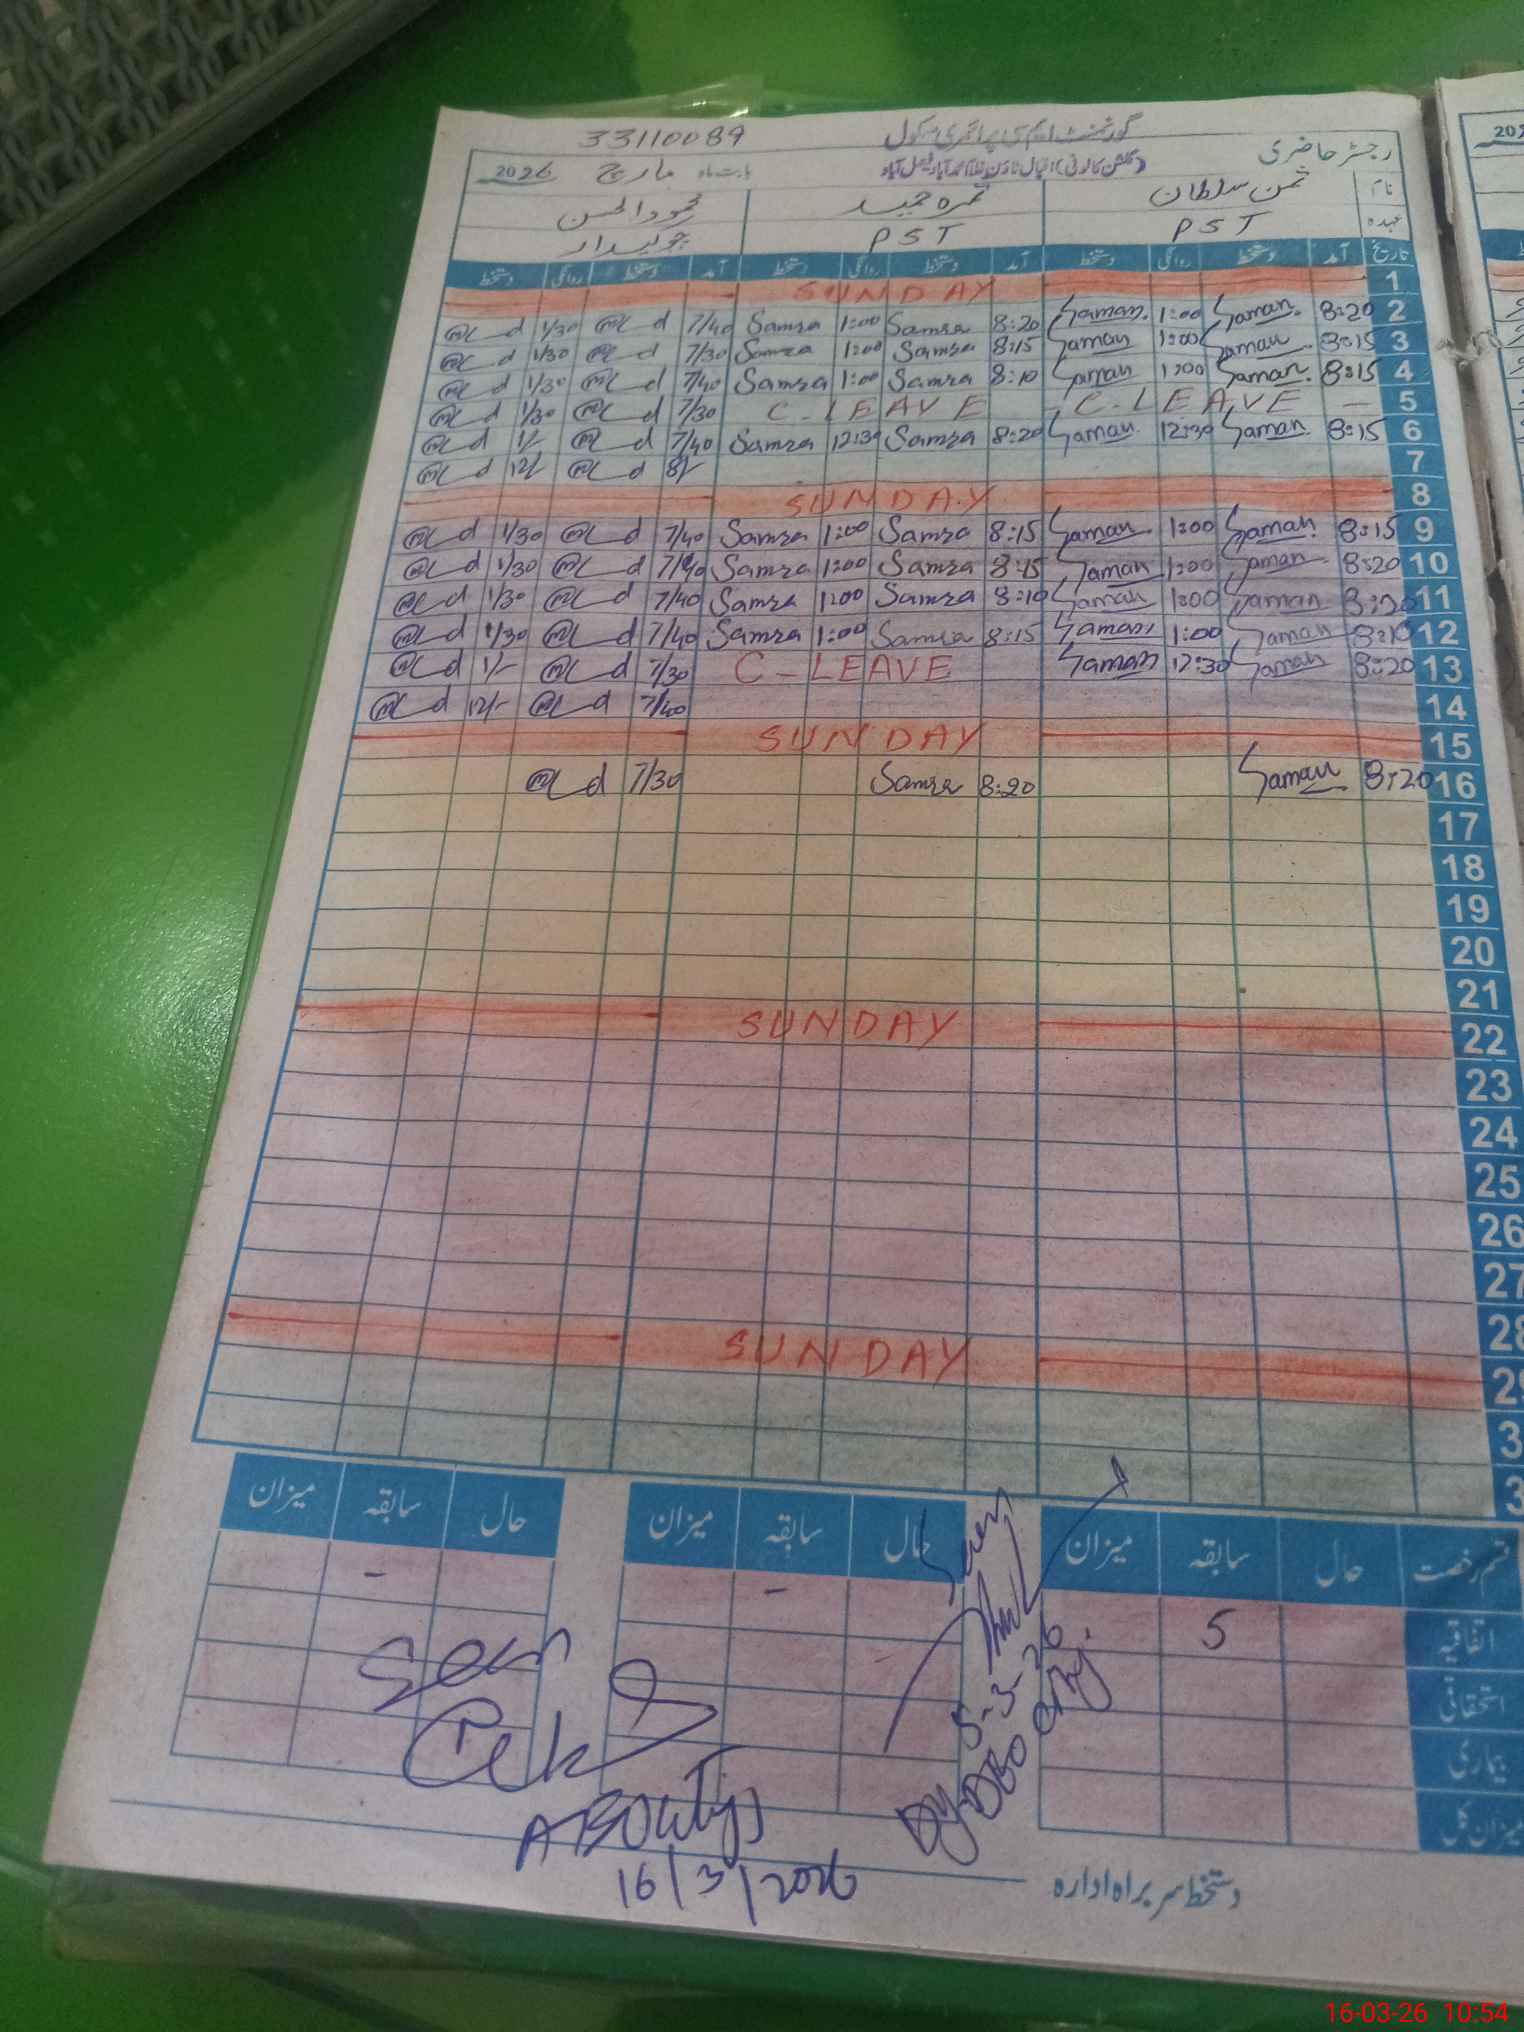 33110089 گورنمنٹ ایم سی پرائمری سکول
رجسٹر حاضری
2026 مارچ بابت ماہ
نام ثمن سلطان ثمرہ حمید محمود الحسن
عہدہ PST PST چوکیدار
تاریخ آمد دستخط روانگی دستخط آمد دستخط روانگی دستخط آمد دستخط روانگی دستخط
SUNDAY 1
1/30 7/40 Samra 1:00 Samra 8:20 Saman 1:00 Saman 8:20 2
1/30 7/30 Samra 1:00 Samra 8:15 Saman 1:00 Saman 8:15 3
1/30 7/40 Samra 1:00 Samra 8:10 Saman 1:00 Saman 8:15 4
1/30 7/30 C-LEAVE C-LEAVE 5
1/- 7/40 Samra 12:30 Samra 8:20 Saman 12:30 Saman 8:15 6
12/- 8/- 7
SUNDAY 8
1/30 7/40 Samra 1:00 Samra 8:15 Saman 1:00 Saman 8:15 9
1/30 7/40 Samra 1:00 Samra 8:15 Saman 1:00 Saman 8:20 10
1/30 7/40 Samra 1:00 Samra 8:10 Saman 1:00 Saman 8:20 11
1/30 7/40 Samra 1:00 Samra 8:15 Saman 1:00 Saman 8:10 12
1/- 7/30 C-LEAVE Saman 12:30 Saman 8:20 13
12/- 7/40 14
SUNDAY 15
7/30 Samra 8:20 Saman 8:20 16
17
18
19
20
21
SUNDAY 22
23
24
25
26
27
28
SUNDAY 29
3
3
قسم رخصت حال سابقہ میزان حال سابقہ میزان حال سابقہ میزان
اتفاقیہ 5 - -
استحقاقی
بیماری
میزان کل
Seen
5-3-26
Seen
16/3/2026
دستخط سربراہ ادارہ
202
16-03-26 10:54